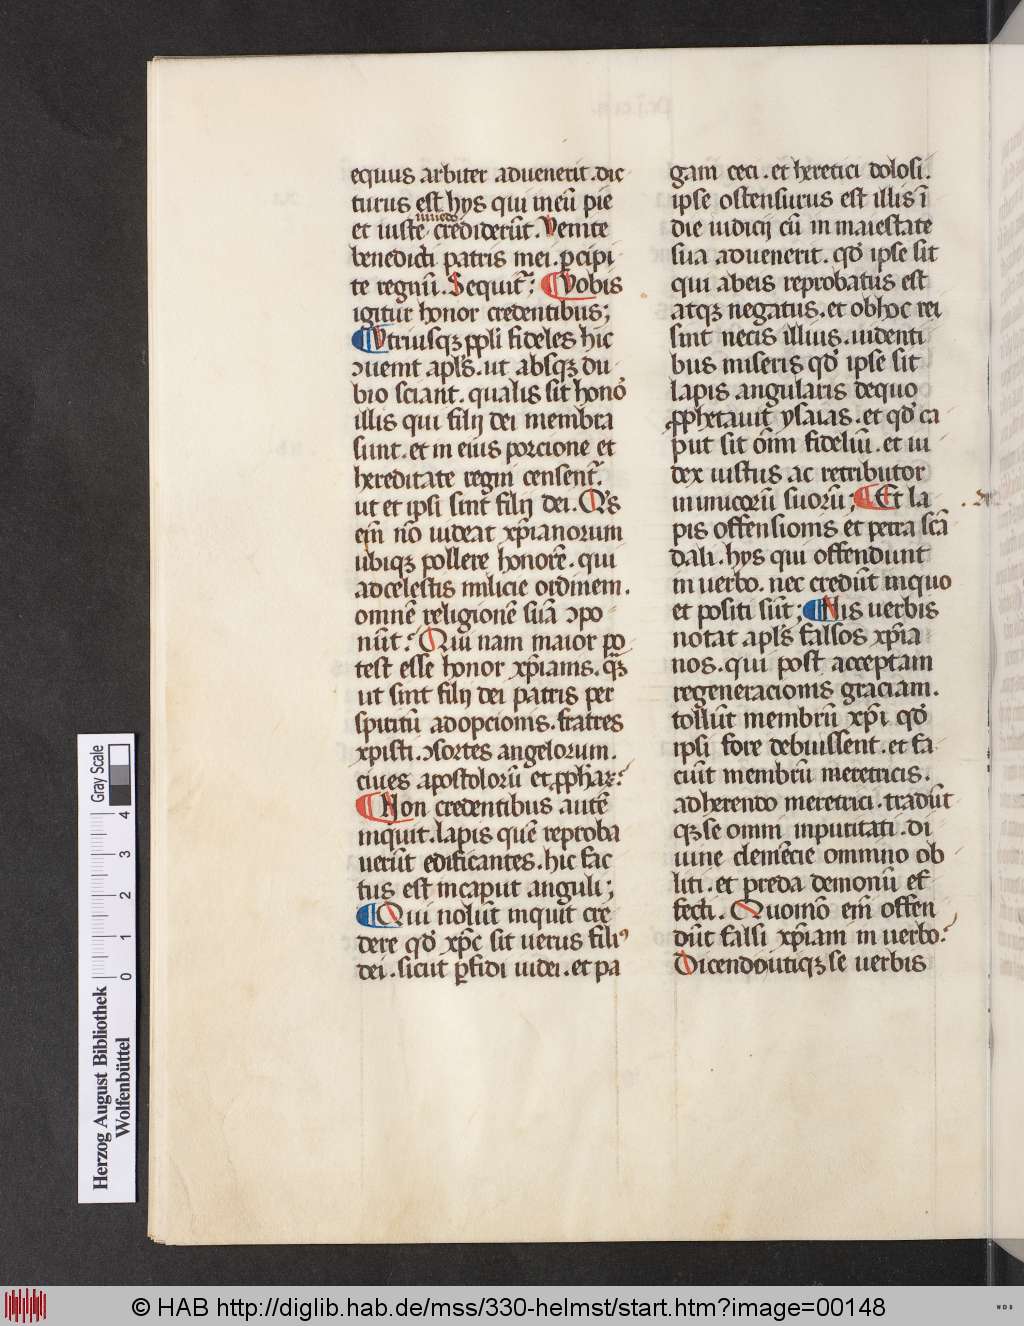 equus arbiter aduenerit. dic
turus est hys qui in eū pie
et iuste crediderūt. Venite
benedicti patris mei. ꝑcipi
te regnū. Sequit᷑; ¶ Vobis
igitur honor credentibus;
¶ Vtriusqꝫ ppl̄i fideles hic
ꝯuenit apl̄s. ut absqꝫ du
bio sciant. qualis sit honoꝛ᷑
illis qui filij dei membra
sunt. et in eius porcione et
hereditate regni censent᷑.
ut et ipsi sint filij dei. Q̄s
em̄ nō uideat xp̄ianorum
ubiqꝫ pollere honorē. qui
ad celestis milicie ordinem.
omnē religionē suā ꝯpo
nūt? Qui nam maior po
test esse honor xp̄ianis. qꝫ
ut sint filij dei patris per
spiritū adopcionis. fratres
xpisti. ꝯsortes angelorum.
ciues apostolorū et ꝓphaꝝ?
¶ Non credentibus autē
inquit. lapis quē reproba
uerūt edificantes. hic fac
tus est in caput anguli;
¶ Qui nolūt inquit cre
dere qd̓ xp̄c sit uerus filiꝰ
dei. sicut ꝑfidi iudei. et pa
gani ceci. et heretici dolosi.
ipse ostensurus est illis ī
die iudicij cū in maiestate
sua aduenerit. qd̓ ipse sit
qui ab eis reprobatus est
atqꝫ negatus. et ob hoc rei
sint necis illius. uidenti
bus miseris qd̓ ipse sit
lapis angularis de quo
ꝓphetauit ysaias. et qd̓ ca
put sit om̄ fideliū. et iu
dex iustus ac retributor
inimicorū suorū; ¶ Et la
pis offensionis et petra scā
dali. hys qui offendunt
in uerbo. nec credūt in quo
et positi sūt; ¶ His uerbis
notat apl̄s falsos xp̄ia
nos. qui post acceptam
regeneracionis graciam.
tollūt membrū xp̄i qd̓
ipsi fore debuissent. et fa
ciūt membrū meretricis.
adherendo meretrici. tradūt
qꝫ se omni inpuritati. di
uine clemēcie omnino ob
liti. et preda demonū ef
fecti. Quomō em̄ offen
dūt falsi xp̄iani in uerbo?
Dicendo utiqꝫ se uerbis
Herzog August Bibliothek
Wolfenbüttel
0 1 2 3 4
Gray Scale
© HAB http://diglib.hab.de/mss/330-helmst/start.htm?image=00148